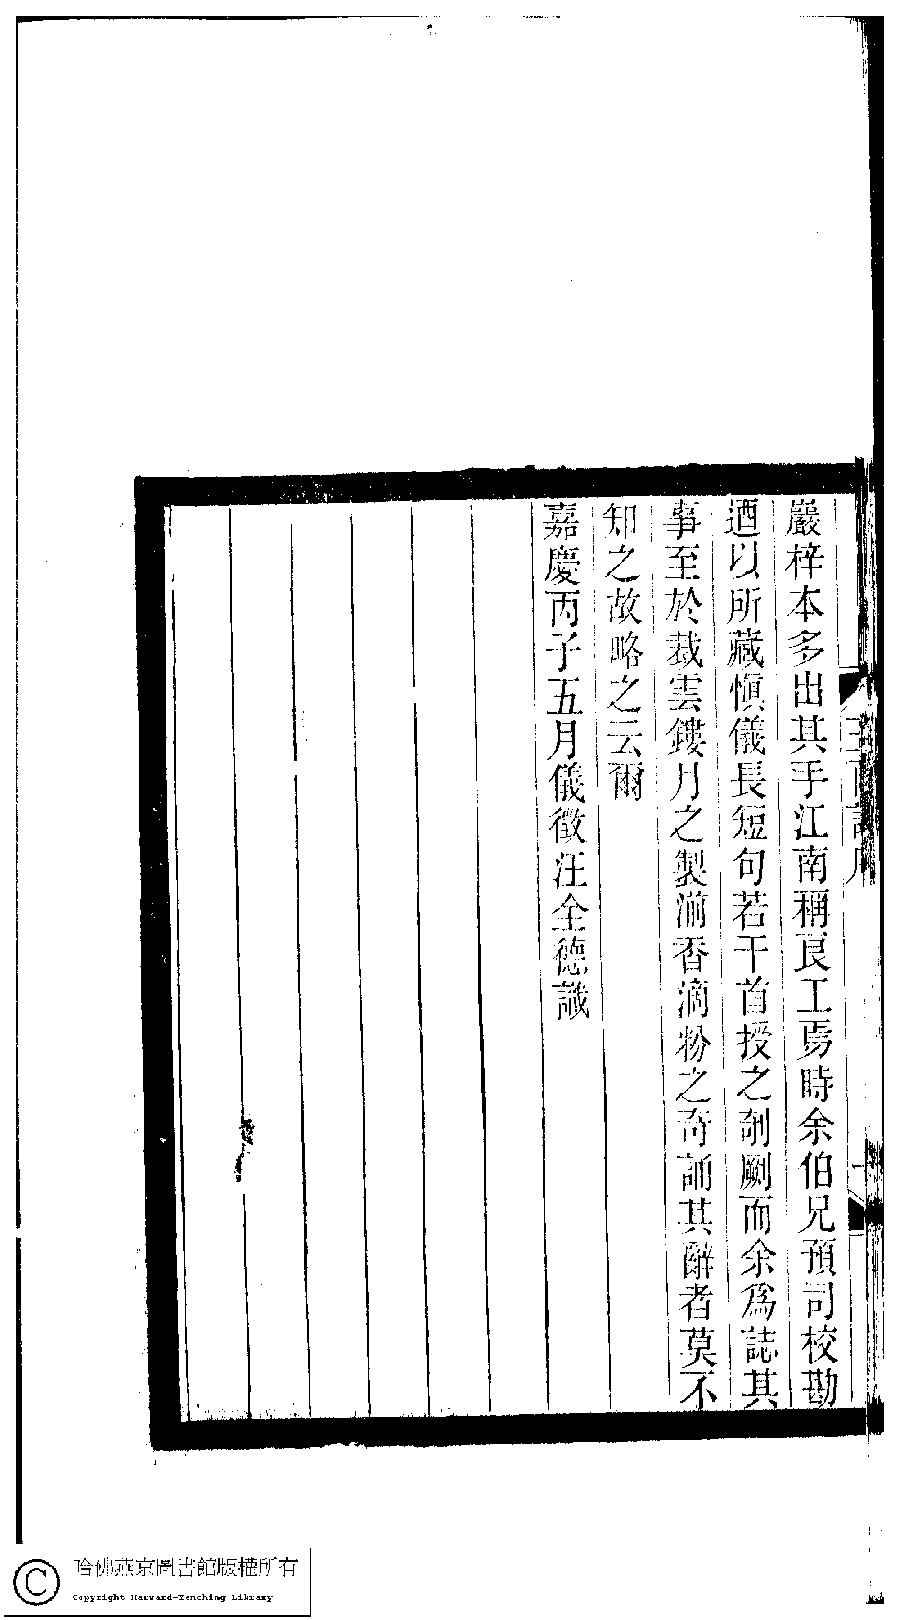 巖梓本多出其手江南稱良工焉時余伯兄預司校勘
迺以所藏愼儀長短句若干首授之剞劂而余爲誌其
事至於裁雲鏤月之製湔香滴粉之奇誦其辭者莫不
知之故略之云爾
嘉慶丙子五月儀徵汪全德識
哈佛燕京圖書館版權所有
Copyright Harvard-Yenching Library